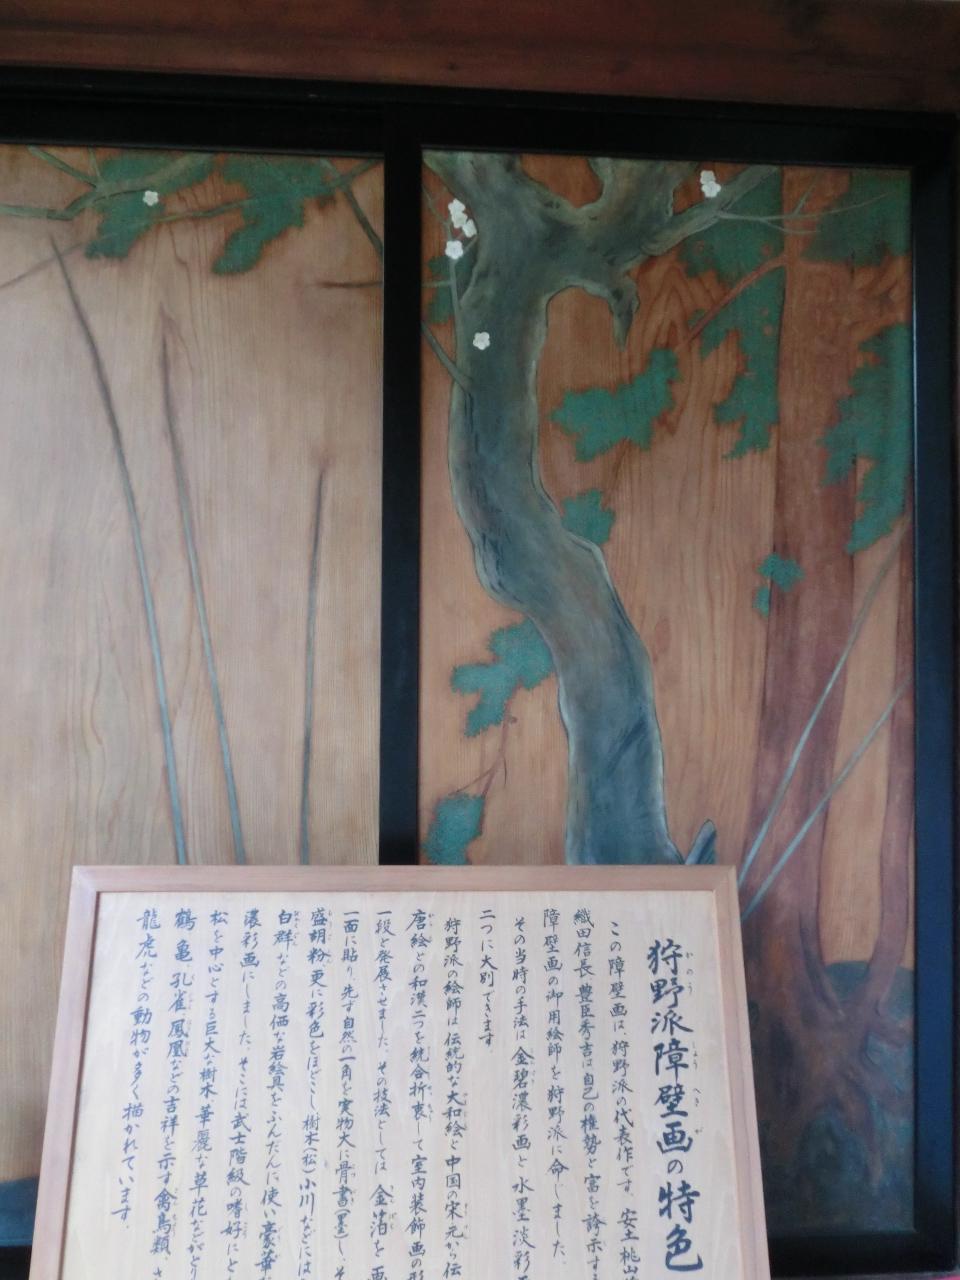 狩野派障壁画の特色
この障壁画は、狩野派の代表作です。安土桃山
織田信長、豊臣秀吉は自己の権勢と富を誇示す
障壁画の御用絵師を狩野派に命じました。
その当時の手法は金碧濃彩画と水墨淡彩
二つに大別できます。
狩野派の絵師は伝統的な大和絵と中国の宋元から伝
唐絵との和漢二つを統合折衷して室内装飾画の形
一段と発展させました。その技法としては金箔を画
一面に貼り、先ず自然の一角を実物大に骨書(墨)し、そ
盛胡粉、更に彩色をほどこし樹木(松)小川などには
白群などの高価な岩絵具をふんだんに使い豪華
濃彩画にしました。そこには武士階級の嗜好にと
松を中心とする巨大な樹木、華麗な草花などがと
鶴亀孔雀鳳凰などの吉祥を示す禽鳥類、さ
龍虎などの動物が多く描かれています。